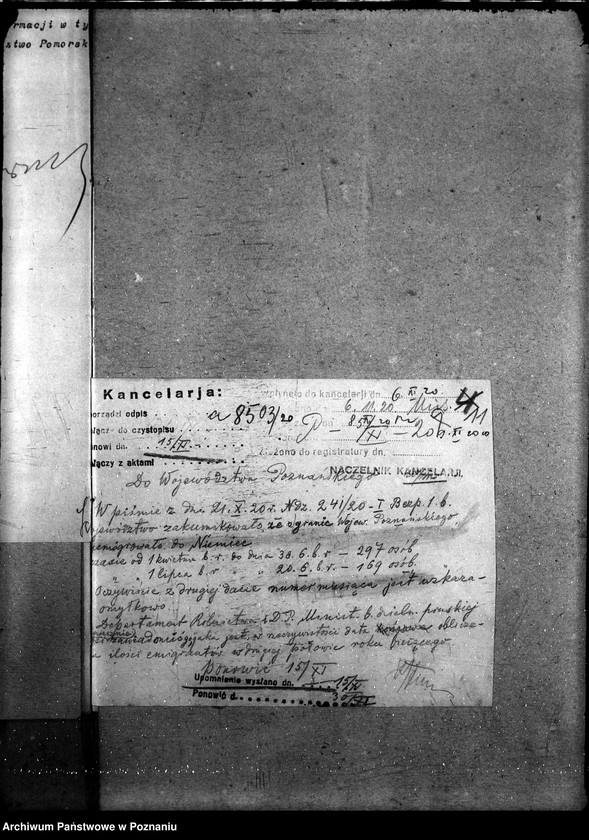 rmacji w ty
ztwo Pomorsk
Kancelarja:
Wpłynęło do kancelarji dn. 6 XI 20
orządzi odpis a 8503/20
6. 11. 20.
łącz- do czystopisu
onowi dn. 15/XI
łączy z aktami
Złożono do registratury dn.
NACZELNIK KANZELARJI
Do Województwa Poznańskiego
W piśmie z dn. 21. X. 20 r. Ndz. 241/20 - I Bezp. 1. b.
województwo zakumikowało, że z granic Wojew. Poznańskiego,
emigrowało do Niemiec
czasie od 1 kwietnia b. r. do dnia 30. 6. b. r. — 297 osób,
" " 1 lipca b. r. " " 20. 6. b. r. — 169 osób.
Oczywiście z drugiej dacie numer miesiąca jest wskaza-
omyłkowo.
Departament Rolnictwa i D. P. Minist. b. dzieln. pruskiej
jaka jest w rzeczywistości data
ilości emigrantów w drugiej połowie roku bieżącego
Ponowić 15/XI
Upomnienie wysłano dn. 15/XI
Ponowić d. 30/XI
Archiwum Państwowe w Poznaniu